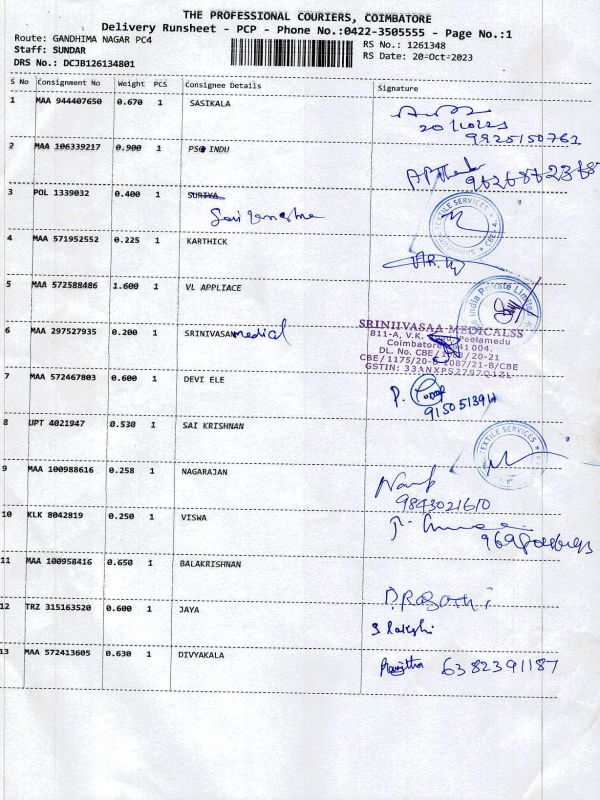 THE PROFESSIONAL COURIERS, COIMBATORE
Delivery Runsheet - PCP - Phone No.:0422-3505555 - Page No.:1
Route: GANDHIMA NAGAR PC4
RS No.: 1261348
Staff: SUNDAR
RS Date: 20-Oct-2023
DRS No.: DCJB126134801
S No Consignment No Weight PCS Consignee Details Signature
1 MAA 944407650 0.670 1 SASIKALA
9925150761
2 MAA 106339217 0.900 1 PSG INDU
3 POL 1339032 0.400 1 SURIYA
TEXTILE SERVICES
4 MAA 571952552 0.225 1 KARTHICK
5 MAA 572588486 1.600 1 VL APPLIACE
India Private Limited
6 MAA 297527935 0.200 1 SRINIVASAN medical
SRINIIVASAA MEDICALSS
811-A, V.K. Peelamedu
Coimbatore 641 004.
DL. No. CBE 20-21
GSTIN: 33ANXPS2797Q1ZL
7 MAA 572467803 0.600 1 DEVI ELE
P.
8 UPT 4021947 0.530 1 SAI KRISHNAN
TEXTILE SERVICES
9 MAA 100988616 0.258 1 NAGARAJAN
9843021610
10 KLK 8042819 0.250 1 VISWA
11 MAA 100958416 0.650 1 BALAKRISHNAN
12 TRZ 315163520 0.600 1 JAYA
S Rakshi
13 MAA 572413605 0.630 1 DIVYAKALA
6382391187